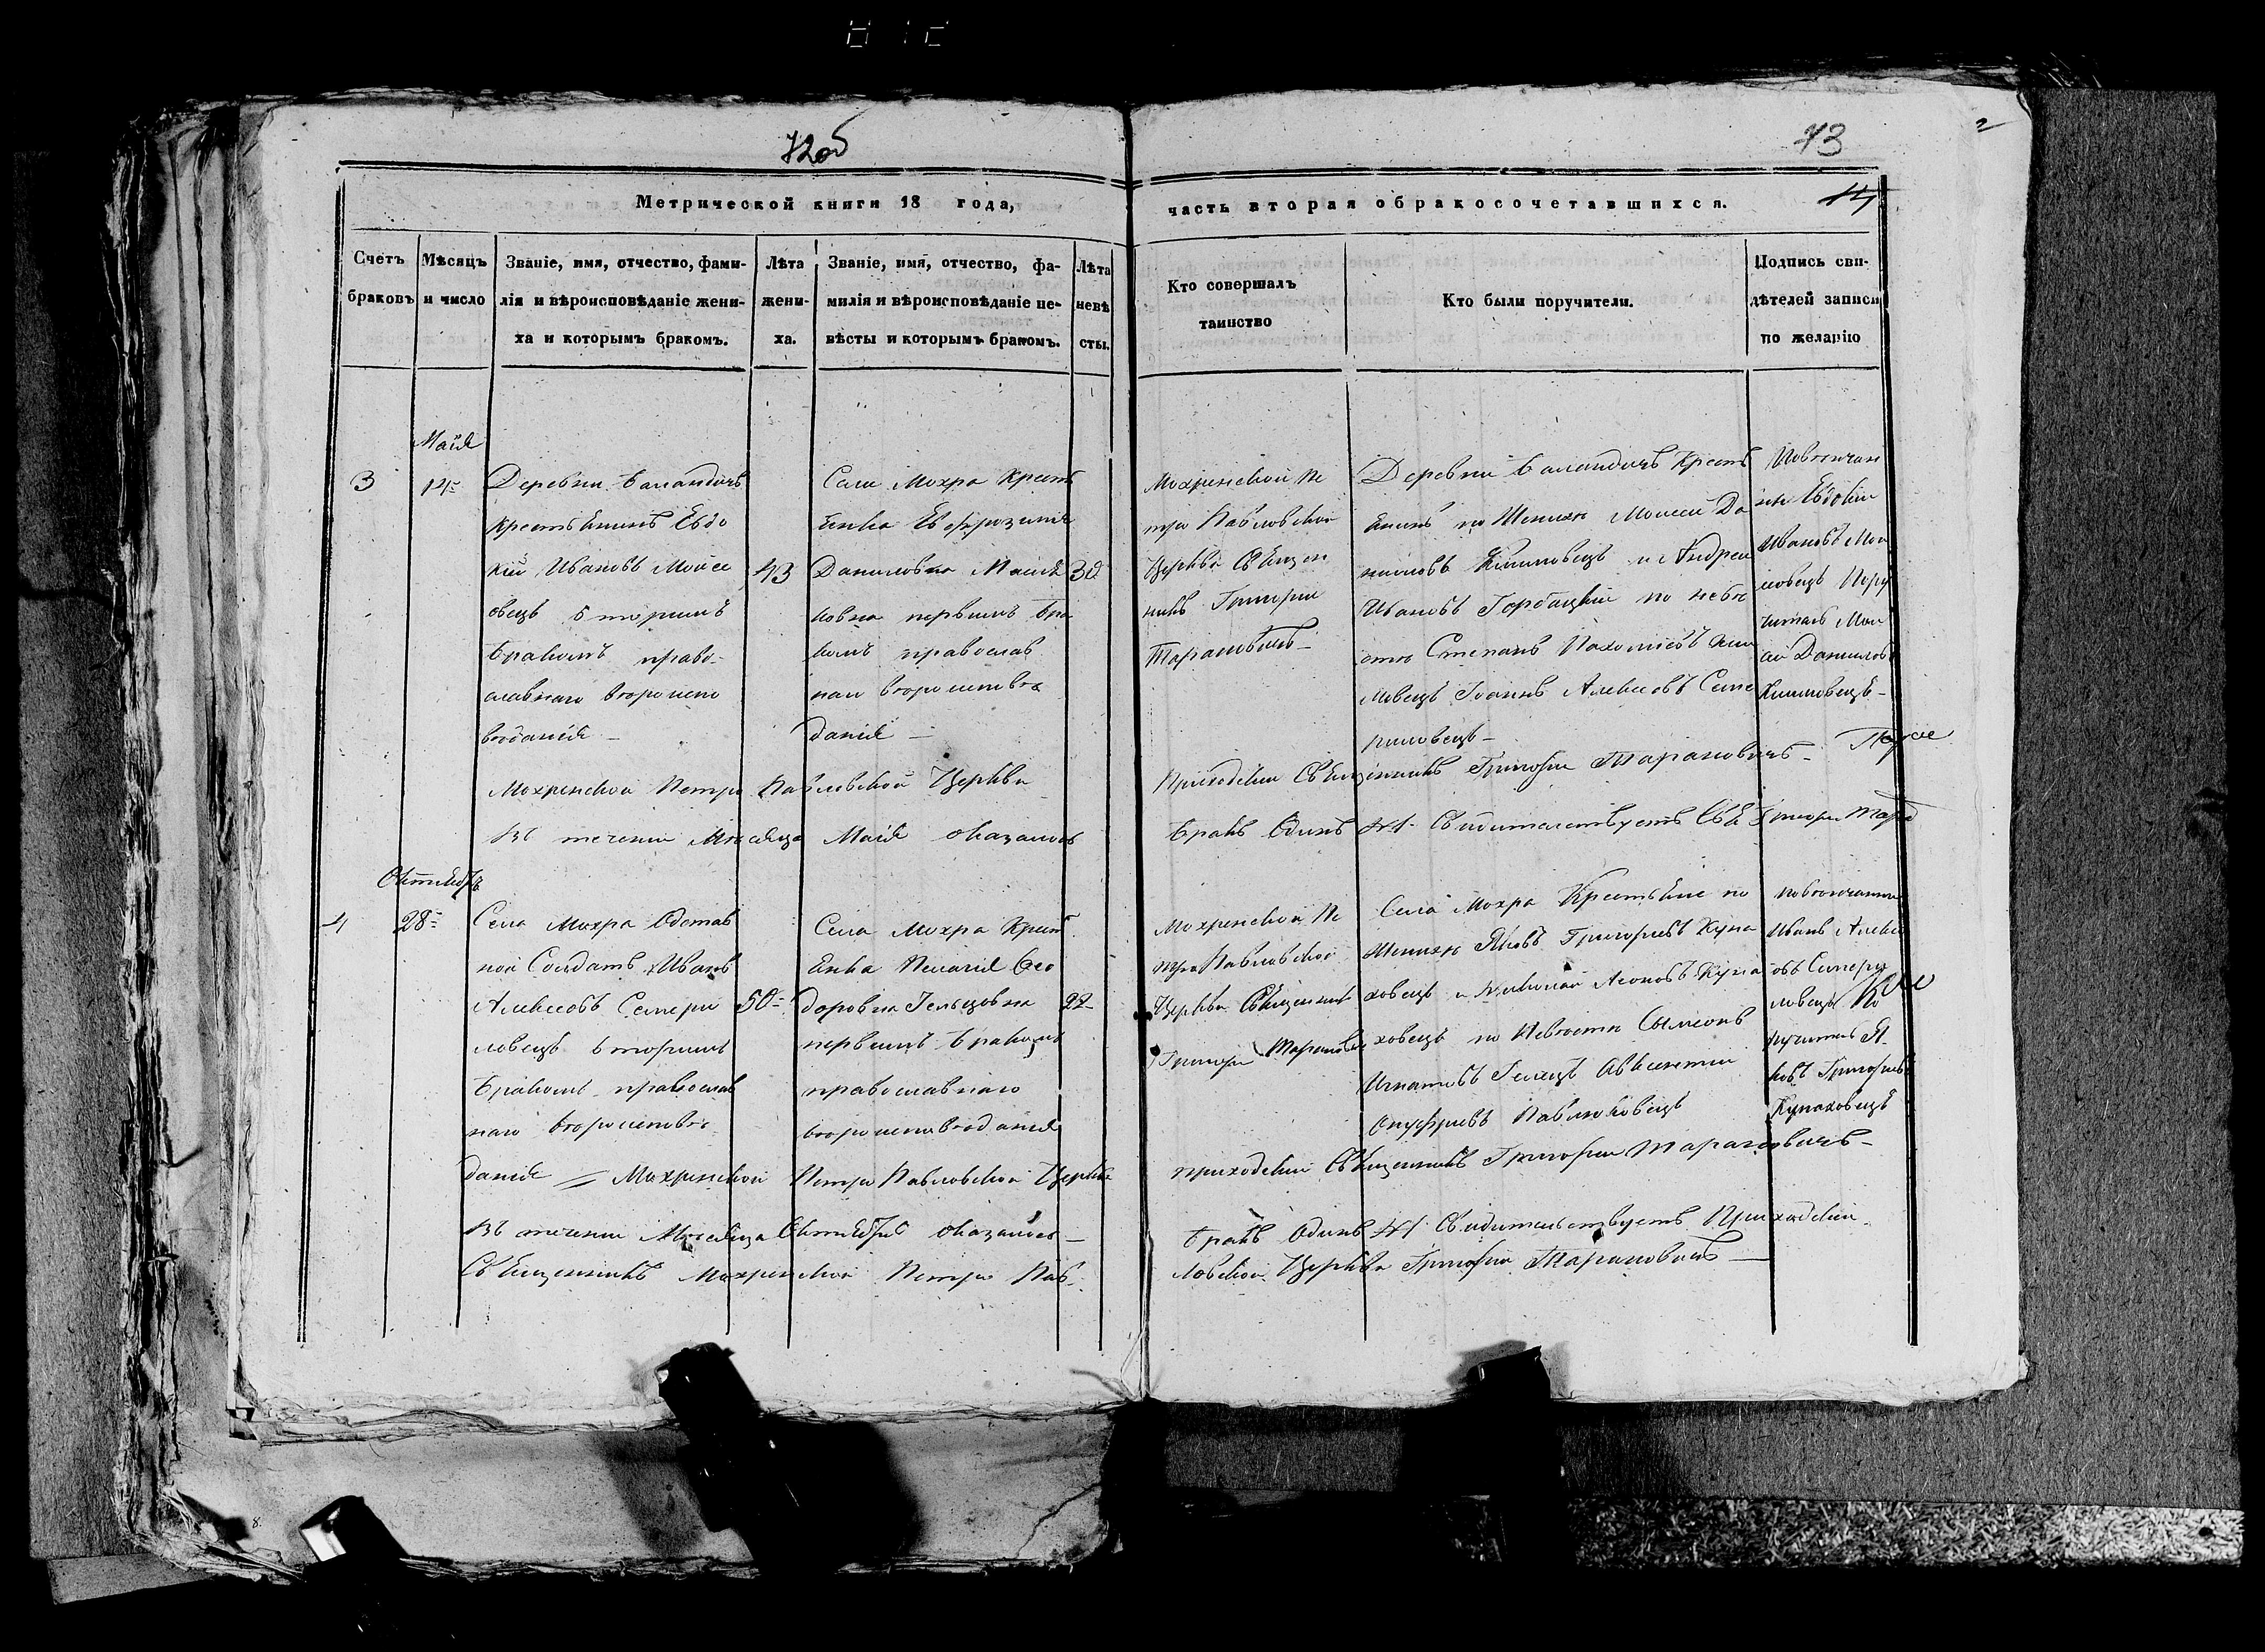 72об
73
2
14
Метрической книги 18 года,
часть вторая о бракосочетавшихся.
Счетъ браковъ
Мѣсяцъ и число
Званіе, имя, отчество, фами-
лія и вѣроисповѣданіе жени-
ха и которымъ бракомъ.
Лѣта
жени-
ха.
Званіе, имя, отчество, фа-
милія и вѣроисповѣданіе не-
вѣсты и которымъ бракомъ.
Лѣта
невѣ
сты.
Кто совершалъ
таинство
Кто были поручители.
Подпись сви-
дѣтелей записи
по желанію
3
Маія
14
Деревни Баландичъ
Крестьянинъ Евдо
кій Ивановъ Мойсе
овецъ вторымъ
бракомъ право-
славнаго вѣроиспо
вѣданія
43
Села Мохра Крестъ
янка Евфрозинія
Даниловна
первымъ бра
комъ православ
наго вѣроисповѣ
данія
30
Мохренской Пе
тро Павловской
Церкви Священ
никъ Григорій
Тарановичъ
Деревни Баландичъ Крестъ
янинъ по Женихѣ Моисей Да
ниловъ Климовецъ и Андрей
Ивановъ Горбацкій по невѣ
стѣ Степанъ Пахомовъ Кли
мовецъ Іоаннъ Алексѣевъ Семе
риловецъ
Новѣнчан
ный Евдокій
Ивановъ Мои
Пору
читель Мои
сей Даниловъ
Климовецъ
Мохренской Петро Павловской Церкви
Приходскій Священникъ Григорій Тарановичъ
Въ теченіи Мѣсяца Маія оказалось
бракъ Одинъ №1. Свидительствуетъ Григорій
4
Октября
28
Села Мохра Одстав
ной Солдатъ Иванъ
Алексѣевъ Семери
ловецъ вторымъ
бракомъ православ
наго вѣроисповѣ
данія
50
Села Мохра Крест
янка Пелагія Ѳео
доровна Гельцовна
первымъ бракомъ
православнаго
вѣроисповѣданія
22
Мохренской Пе
тро Павловской
Церкви Священникъ
Григорій Тарановичъ
Села Мохра Крестьяне по
Женихѣ Яковъ Григорьевъ Купа
ховецъ и Николай Леоновъ Купа
ховецъ по Невѣстѣ Сымеонъ
Игнатовъ Гелецъ Авксентій
Онуфріевъ Павлюковецъ
новѣнчанный
Иванъ Алексѣ
евъ Семери
ловецъ По
ручитель Я
ковъ Григорьевъ
Купаховецъ
Мохренской Петро Павловской Церкви
приходскій Священникъ Григорій Тарановичъ
Въ теченіи Мѣсяца Октября оказалось
бракъ Одинъ №1. Свидительствуетъ Приходскій
Священникъ Мохренской Петро Пав-
ловской Церкви Григорій Тарановичъ
8.